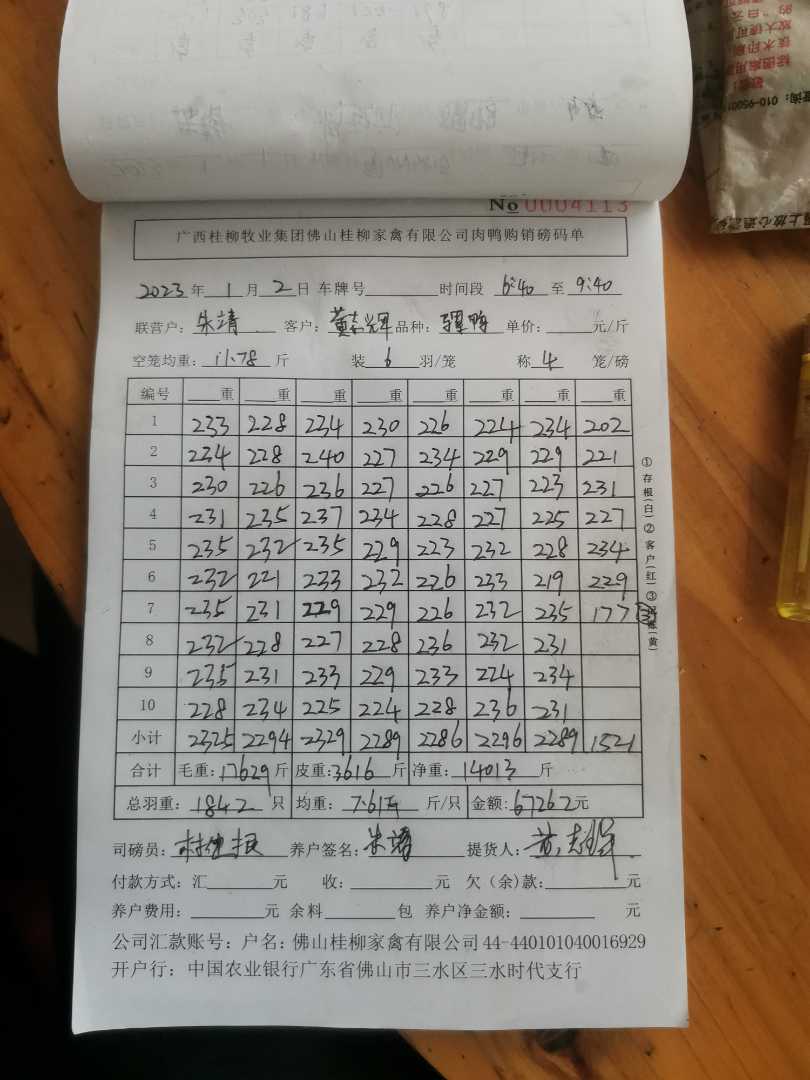 No 0004113
广西桂柳牧业集团佛山桂柳家禽有限公司肉鸭购销磅码单
2023年1月2日 车牌号 时间段 6:40 至 9:40
联营户:朱靖 客户:黄志辉 品种: 单价: 元/斤
空笼均重:11.78斤 装6羽/笼 称4笼/磅
编号 重 重 重 重 重 重 重 重
1 233 228 234 230 226 224 234 202
2 234 228 240 227 234 229 229 221
3 230 226 236 227 226 227 223 231
4 231 235 237 234 228 227 225 227
5 235 232 235 229 223 232 228 234
6 232 221 233 232 226 233 219 229
7 235 231 229 229 226 232 235 177
8 232 228 227 228 236 232 231
9 235 231 233 229 233 224 234
10 228 234 225 224 228 236 231
小计 2325 2294 2329 2289 2286 2296 2289 1521
合计 毛重:17629斤 皮重:3616斤 净重:14013斤
总羽重:1842只 均重: 斤/只 金额:67262元
司磅员: 养户签名:朱靖 提货人:黄志辉
付款方式:汇 元 收: 元 欠(余)款: 元
养户费用: 元 余料 包 养户净金额: 元
公司汇款账号:户名:佛山桂柳家禽有限公司 44-440101040016929
开户行:中国农业银行广东省佛山市三水区三水时代支行
①存根(白)②客户(红)③ (黄)
010-9500